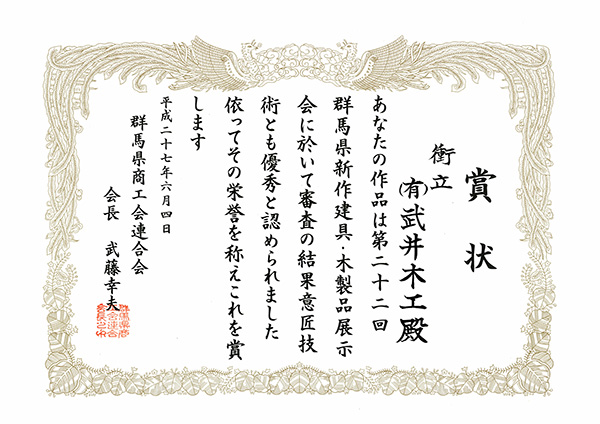 賞状
衝立
(有)武井木工殿
あなたの作品は第二十二回
群馬県新作建具・木製品展示
会に於いて審査の結果意匠技
術とも優秀と認められました
依ってその栄誉を称えこれを賞
します
平成二十七年六月四日
群馬県商工会連合会
会長 武藤幸夫